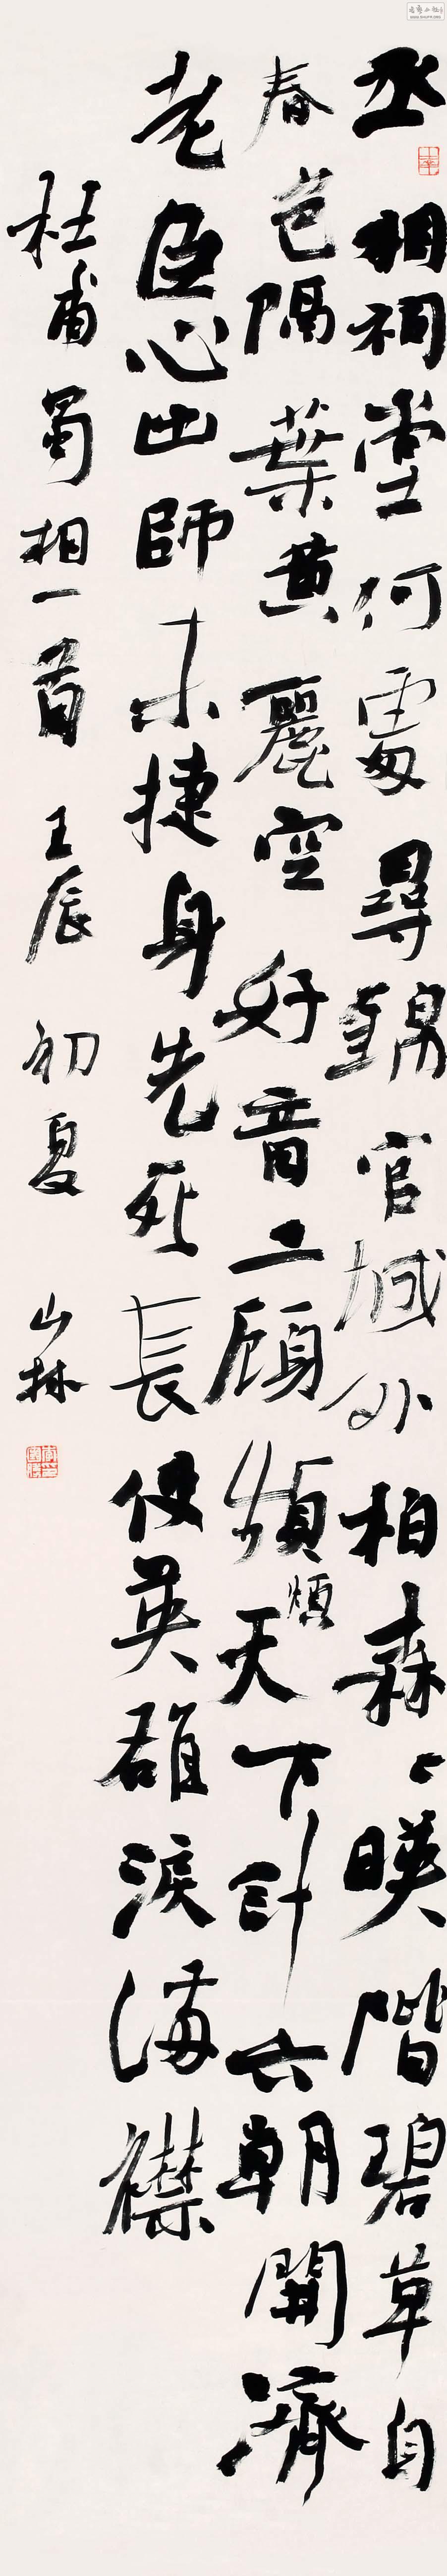 丞相祠堂何處尋錦官城外柏森〻暎階碧草自
春色隔葉黃麗空好音三顧頻煩天下計六朝開濟
老臣心出師未捷身先死長使英雄淚滿襟
杜甫蜀相一首 壬辰初夏 山林